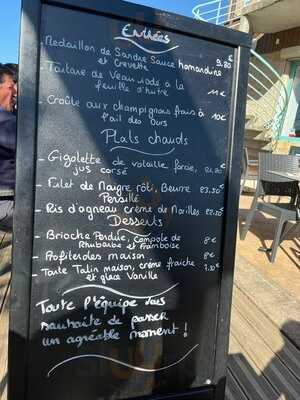 Entrées
- Médaillon de Sandre Sauce homardine 9.80
et Crevette
- Tartare de Veau iodé à la
feuille d'huître 11€
- Croûte aux champignons frais à 10€
l'ail des Ours
Plats chauds
- Gigolette de volaille farcie,
jus corsé
- Filet de Maigre rôti, Beurre 23.50
Persillé
- Ris d'agneau crème de Morilles
Desserts
- Brioche Perdue, Compote de 8€
Rhubarbe et Framboise
- Profiteroles maison 8€
- Tarte Tatin maison, crème fraîche
et glace Vanille
Toute l'équipe vous
souhaite de passer
un agréable moment !